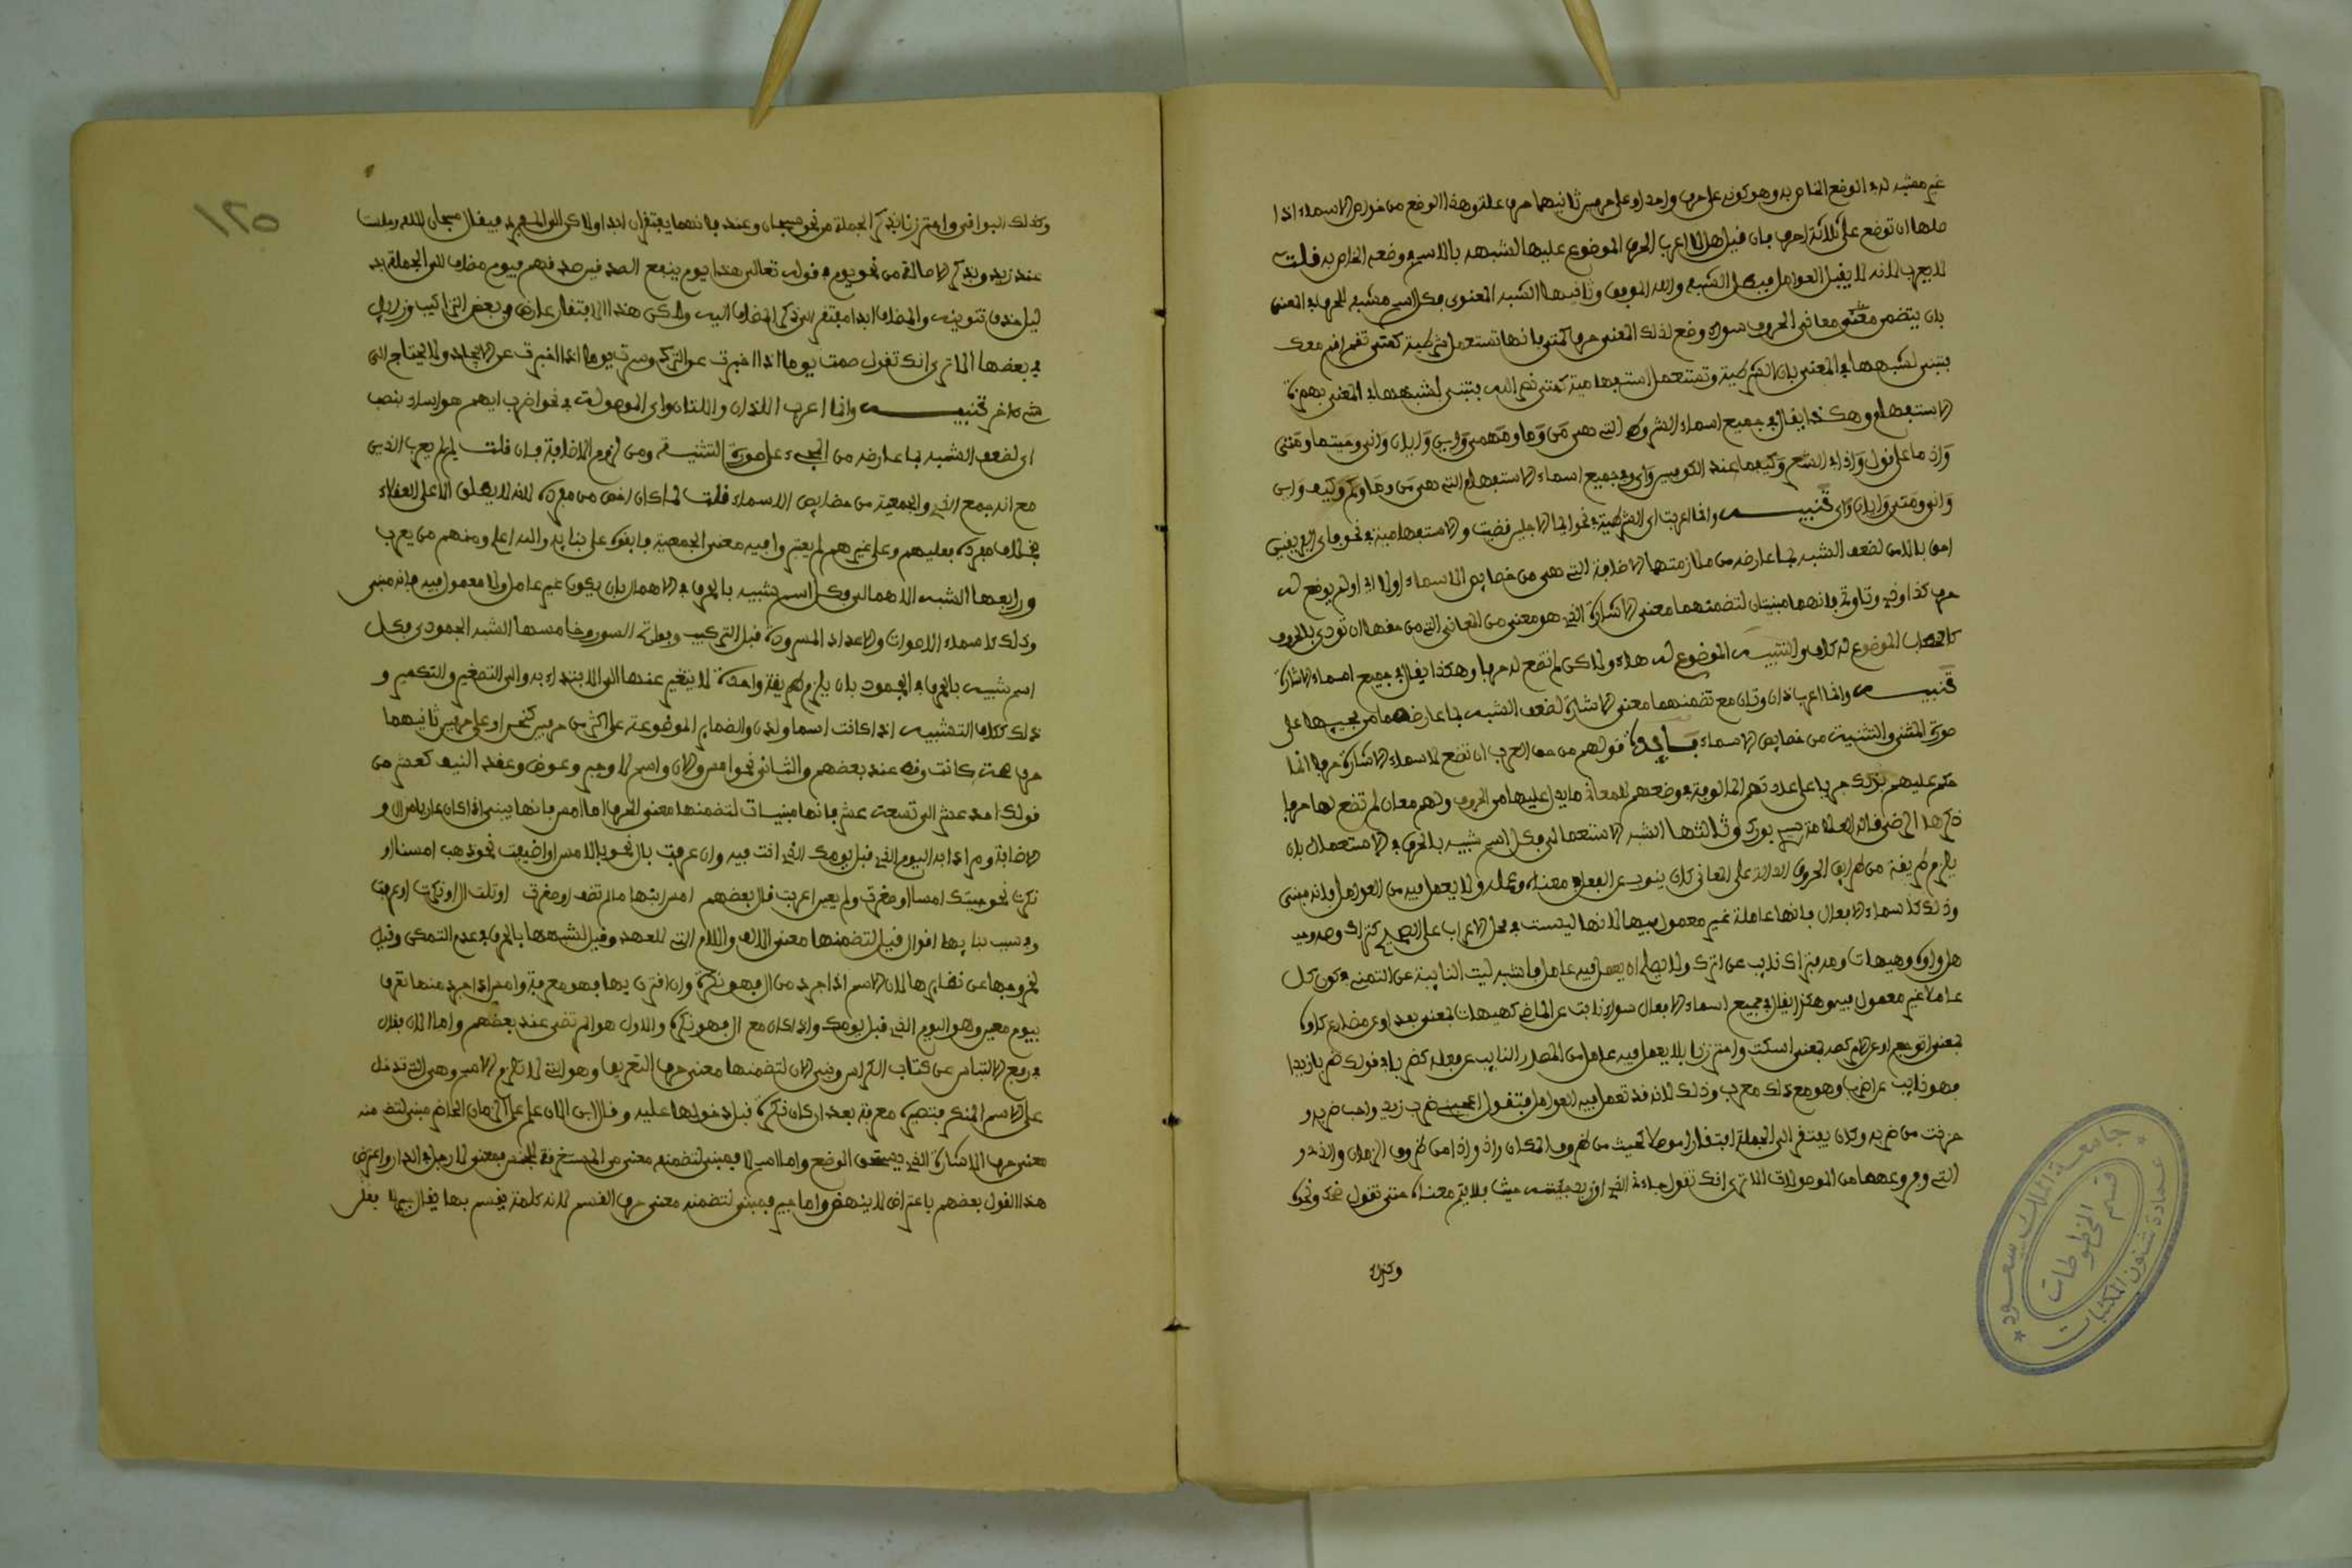 غير مشبه له في الوضع الخاص به وهو كونه على حرف واحد او على حرفين ثانيهما حرف علة وهذا الوضع من خواص الاسماء اذا
حقها ان توضع على ثلاثة احرف فان قيل هلا اعرب الحرف الموضوع عليها لشبهه بالاسم في وضعه الخاص به قلت
لا يعرب لانه لا يقبل العوامل فبطل الشبه والله الموفق وثانيها الشبه المعنوي فكل اسم مشبه للحرف في المعنى
بان يتضمن معنى من معاني الحروف سواء وضع لذلك المعنى حرف كمتى فانها تستعمل شرطية كمتى تقم اقم معك
فتبنى لشبهها في المعنى بان الشرطية وتستعمل استفهامية كمتى نصر الله فتبنى لشبهها في المعنى بهمزة
الاستفهام وهكذا يقال في جميع اسماء الشروط التي هي من وما ومهما واين وايان وانى وحيثما ومتى
واذ ما على قول واذا في الشعر وكيفما عند الكوفيين واي وفي جميع اسماء الاستفهام التي هي من وما وكم وكيف واين
وانى ومتى وايان واي تنبيه وانما اعربت اي الشرطية في نحو ايما الاجلين قضيت والاستفهامية في نحو فاي الفريقين
احق بالامن لضعف الشبه بما عارضه من ملازمتها الاضافة التي هي من خصايص الاسماء اولا اي او لم يوضع له
حرف كذا وذي وتا وته فانهما مبنيتان لتضمنهما معنى الاشارة الذي هو معنى من المعاني التي من حقها ان تودى بالحروف
كالخطاب الموضوع له كاف والتنبيه الموضوع له هاء ولاكن لم تضع له حرفا وهكذا يقال في جميع اسماء الاشارة
تنبيه وانما اعرب ذان وتان مع تضمنهما معنى الاشارة لضعف الشبه بما عارضهما من مجيئهما على
صورة المثنى والتثنية من خصايص الاسماء فايدة قولهم من حق العرب ان تضع لاسماء الاشارة حرفا انما
حكم عليهم بذلك جريا على عادتهم المالوفة في وضعهم للمعاني ما يدل عليها من الحروف ولهم معان لم تضع لها حرفا
ذكر هذا الخضري قاله العلامة يس بورك وثالثها الشبه الاستعمالي فكل اسم شبيه بالحرف في الاستعمال بان
يلزم طريقة من طرايق الحروف الدالة على المعاني كان ينوب عن الفعل في معناه وعمله ولا يعمل فيه من العوامل فانه مبنى
وذلك كاسماء الافعال فانها عاملة غير معمول فيها لانها ليست في محل الاعراب على الصحيح كتراك وصه ومه
هل واوه وهيهات ومه فتراك نايب عن اترك ولا يصلح ان يعمل فيه عامل فاشبه ليت النايبة عن اتمنى في كون كل
عاملا غير معمول فيه وهكذا يقال في جميع اسماء الافعال سواء نابت عن الماضي كهيهات بمعنى بعد او عن مضارع كاوه
بمعنى اتوجع او عن امر كصه بمعنى اسكت واحترزنا بلا يعمل فيه عامل من المصدر النايب عن فعله كضربا في قولك ضربا زيدا
فهو نايب عن اضرب وهو مع ذلك معرب وذلك لانه قد تعمل فيه العوامل فتقول اعجبني ضرب زيد واحب ضربه و
عرفت من ضربه وكان يفتقر الى الجملة افتقارا موصلا كحيث من ظروف المكان واذ واذا من ظروف الزمان والذي و
التي وفروعهما من الموصولات الا ترى انك تقول جاءني الذي او زيد جلست حيث فلا يتم معناه حتى تقول ضحك ونحوه
وكذلك
وكذلك البواقي واحترزنا بذكر الجملة من نحو سبحان وعند فانهما يفتقران ابدا ولاكن الى المفرد فيقال سبحان الله وجلست
عند زيد وبذكر الاصالة من نحو يوم في قوله تعالى هذا يوم ينفع الصادقين صدقهم فيوم مضاف الى الجملة بد
ليل حذف تنوينه والمضاف ابدا مفتقر الى ذكر المضاف اليه ولاكن هذا الافتقار عارض في بعض التراكيب وزايل
في بعضها الا ترى انك تقول صمت يوما اذا اخبرت عن الترك وسرت يوما اذا اخبرت عن الايجاد ولا يحتاج الى
شيء اخر تنبيه وانما اعرب اللذان واللتان واي الموصولة في نحو اضرب ايهم هو اساء بنصب
اي لضعف الشبه بما عارضه من المجيء على صورة التثنية ومن لزوم الاضافة فان قلت لم لم يعرب الذين
مع انه جمع الذي والجمعية من خصايص الاسماء قلت لما كان اخص من مفرده لانه لا يطلق الا على العقلاء
بخلاف مفرده فعليهم وعلى غيرهم لم يعتبروا فيه معنى الجمعية فابقوه على بنايه والله اعلم ومنهم من يعرب
ورابعها الشبه الاهمالي فكل اسم شبيه بالحرف في الاهمال بان يكون غير عامل ولا معمول فيه فانه مبنى
وذلك كاسماء الاصوات والاعداد المسرودة قبل التركيب وفواتح السور وخامسها الشبه الجمودي فكل
اسم شبيه بالحرف في الجمود بان يلزم طريقة واحدة لا يتغير عنها الى الابتداء به والى التصغير والتكسير و
ذلك ككاف التشبيه اذا كانت اسما ولدن والضماير الموضوعة على اكثر من حرفين كنحن او على حرفين ثانيهما
حرف صحة كانت وقط عند بعضهم والثاني نحو امس والان واسم لا وجير وعوض وعقد النيف كعشر من
قولك احد عشر الى تسعة عشر فانها مبنيات لتضمنها معنى الحرف اما امس فانها يبنى اذا كان عاريا من ال و
الاضافة ومرادا به اليوم الذي قبل يومك الذي انت فيه وان عرفت بال نحو بالامس او اضيفت نحو ذهب امسنا او
نكرت نحو جيتك امسا او صغرت ولم يعين اعربت قال بعضهم امس ابنها مالم تضف او صغرت او تلت ال او نكرت او عرفت
وفي سبب بنايها اقوال قيل لتضمنها معنى الالف واللام التي للعهد وقيل لشبهها بالحرف في عدم التمكن وقيل
لخروجها عن نظايرها لان الاسم اذا جرد من ال فهو نكرة وان اقترن بها فهو معرفة وامس اذا جرد منها تعرف
بيوم معين وهو اليوم الذي قبل يومك واذا كان مع ال فهو نكرة والاول هو المرتضى عند بعضهم واما الان فقال
في رفع الالتباس عن كتاب الكراس وبنى الان لتضمنها معنى حرف التعريف وهو التي لا تلزم الاسم وهي التي تدخل
على الاسم المنكر فتصيره معرفة بعد ان كان نكرة قبل دخولها عليه وقال ابي الان علم على الزمان الحاضر مبنى لتضمنه
معنى حرف الاشارة الذي يستحق الوضع واما اسم لا فمبنى لتضمنه معنى من المستغرقة للجنس بمعنى لا رجل في الدار واعترض
هذا القول بعضهم باعتراض لا ينهض واما جير فمبنى لتضمنه معنى حرف القسم لانه كلمة يقسم بها يقال جير لا يفلر
١٢٥
جامعة الملك سعود
عمادة شئون المكتبات
قسم المخطوطات